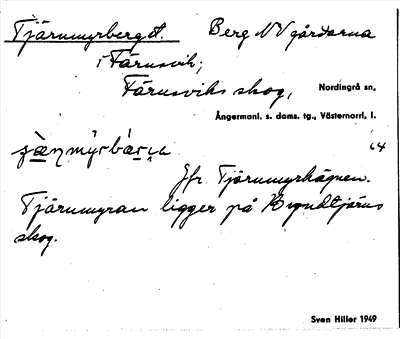 Tjärnmyrberget. Berg NV gårdarna
i Färnsvik;
Färnsviks skog, Nordingrå sn,
Ångermanl. s. doms. tg., Västernorrl. l.
64
Jfr. Tjärnmyrhägnen.
Tjärnmyran ligger på Bryndtjärns
skog.
Sven Hiller 1949